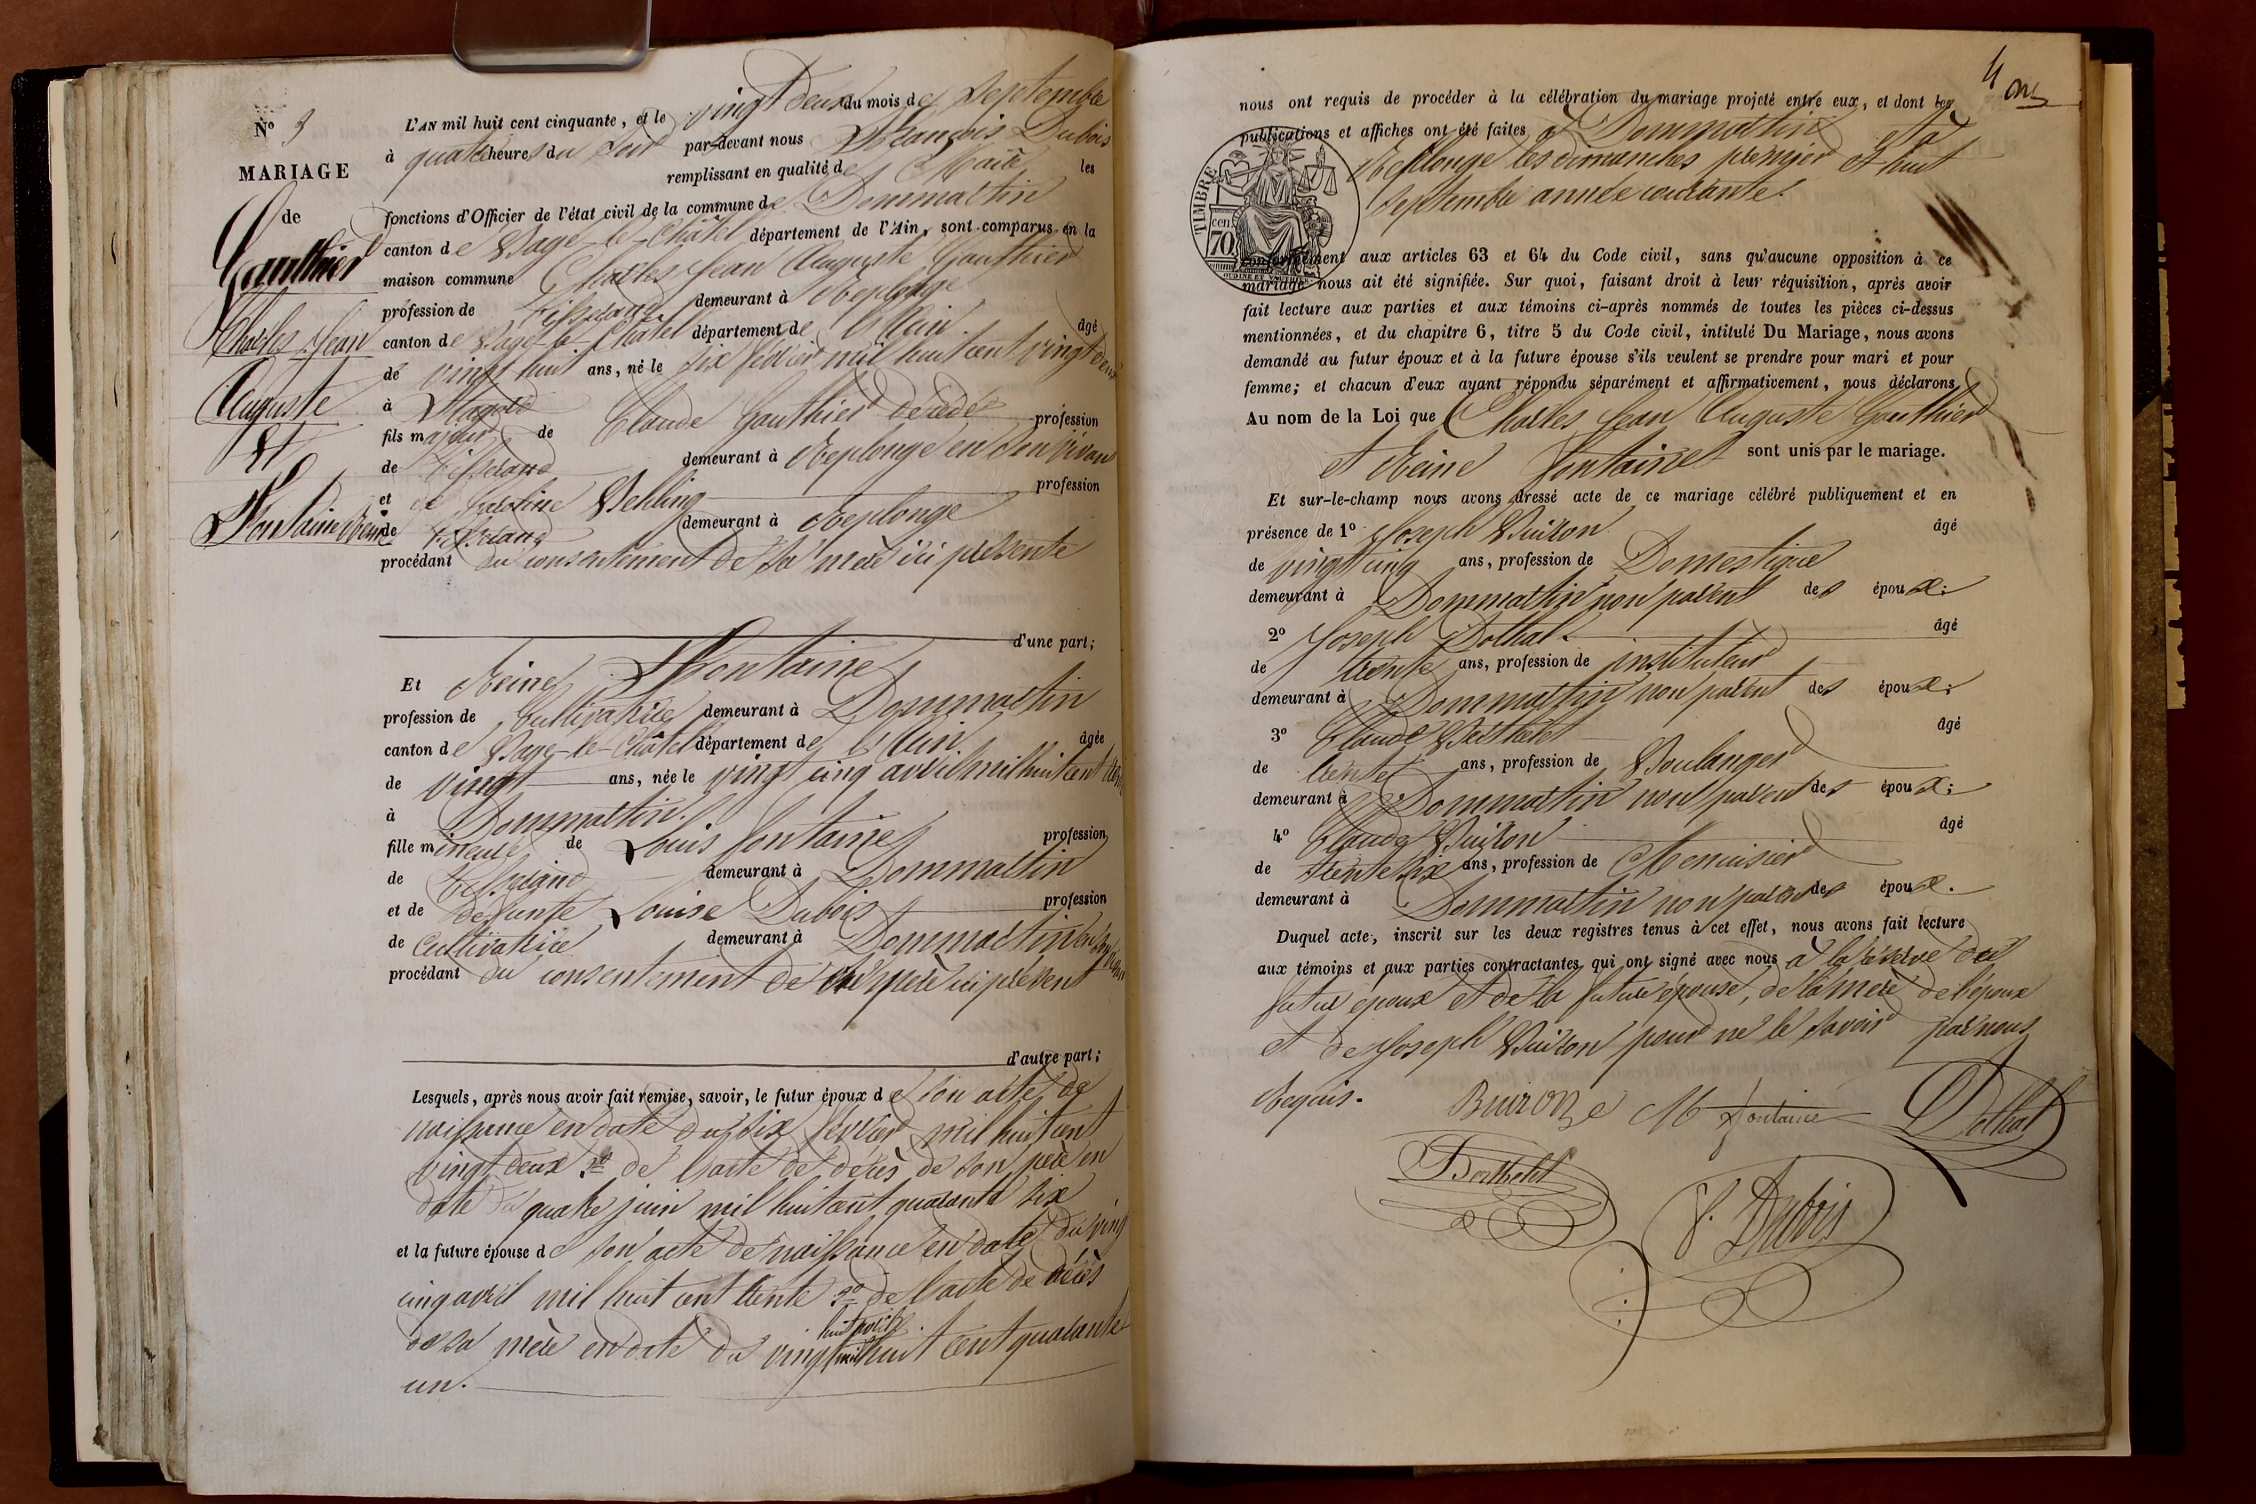 N° 3
MARIAGE
de
Gauthier
Charles Jean
Auguste
Et
Fontaine Reine
L'AN mil huit cent cinquante, et le vingt deux du mois de Septembre
à quatre heures du soir par-devant nous François Dubois
remplissant en qualité de Maire les
fonctions d'Officier de l'état civil de la commune de Dommartin
canton de Bagé-le-Châtel département de l'Ain, sont comparus en la
maison commune Charles Jean Auguste Gauthier
profession de Tisserand demeurant à Replonge
canton de Bagé-le-Châtel département de l'Ain. âgé
de vingt huit ans, né le six février mil huit cent vingt deux
à
fils majeur de Claude Gauthier décédé profession
de Tisserand demeurant à Replonge en son vivant
et de profession
de Tisserand demeurant à Replonge
procédant du consentement de sa mère ici présente
d'une part;
Et Reine Fontaine
profession de Cultivatrice demeurant à Dommartin
canton de Bagé-le-Châtel département de l'Ain âgée
de vingt ans, née le vingt cinq avril mil huit cent trente
à Dommartin.
fille mineure de Louis Fontaine profession
de demeurant à Dommartin
et de défunte Louise Dubois profession
de Cultivatrice demeurant à Dommartin en son vivant
procédant du consentement de père ici présent
d'autre part;
Lesquels, après nous avoir fait remise, savoir, le futur époux de son acte de
naissance en date du six février mil huit cent
vingt deux 2° de l'acte de décès de son père en
date du quatre juin mil huit cent quarante six
et la future épouse de son acte de naissance en date du vingt
cinq avril mil huit cent trente 2° de l'acte de décès
huit avril
de sa mère en date du vingt mil huit cent quarante
un.
4
nous ont requis de procéder à la célébration du mariage projeté entre eux, et dont les
publications et affiches ont été faites à Dommartin et à
Replonge les dimanches premier et huit
septembre année courante.
TIMBRE
70 cen
conformément aux articles 63 et 64 du Code civil, sans qu'aucune opposition à ce
mariage nous ait été signifiée. Sur quoi, faisant droit à leur réquisition, après avoir
fait lecture aux parties et aux témoins ci-après nommés de toutes les pièces ci-dessus
mentionnées, et du chapitre 6, titre 5 du Code civil, intitulé Du Mariage, nous avons
demandé au futur époux et à la future épouse s'ils veulent se prendre pour mari et pour
femme; et chacun d'eux ayant répondu séparément et affirmativement, nous déclarons
Au nom de la Loi que Charles Jean Auguste Gauthier
et Reine Fontaine sont unis par le mariage.
Et sur-le-champ nous avons dressé acte de ce mariage célébré publiquement et en
présence de 1° Joseph Buiron âgé
de vingt cinq ans, profession de Domestique
demeurant à Dommartin non parent des époux;
2° Joseph Dothal âgé
de trente ans, profession de instituteur
demeurant à Dommartin non parent des époux;
3° Claude Berthelet âgé
de trente ans, profession de Boulanger
demeurant à Dommartin non parent des époux;
4° Claude Buiron âgé
de trente six ans, profession de Menuisier
demeurant à Dommartin non parent des époux.
Duquel acte, inscrit sur les deux registres tenus à cet effet, nous avons fait lecture
aux témoins et aux parties contractantes qui ont signé avec nous à la réserve du
futur époux et de la future épouse, de la mère de l'époux
et de Joseph Buiron pour ne le savoir par nous
Requis.
Buiron Fontaine Dothal
Berthelet
F. Dubois